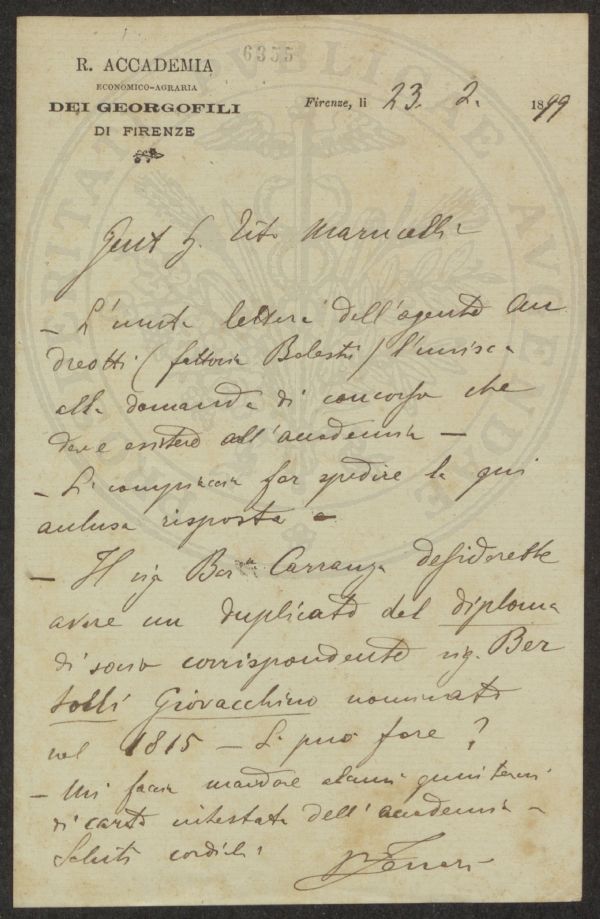 6355
R. ACCADEMIA
ECONOMICO-AGRARIA
DEI GEORGOFILI
DI FIRENZE
Firenze, li 23. 2. 1899
Gent S. Tito Marucelli
- L'unita lettera dell'agente An
dreotti (fattoria Balestri) l'unisca
alla domanda di concorso che
deve esistere all'accademia -
- Si compiaccia far spedire la qui
acclusa risposta -
- Il sig Carranza desiderebbe
avere un duplicato del diploma
di socio corrispondente sig. Ber
tolli Giovacchino nominato
nel 1815 - Si può fare?
- Mi faccia mandare alcuni quinterni
di carta intestata dell'accademia -
Saluti cordiali